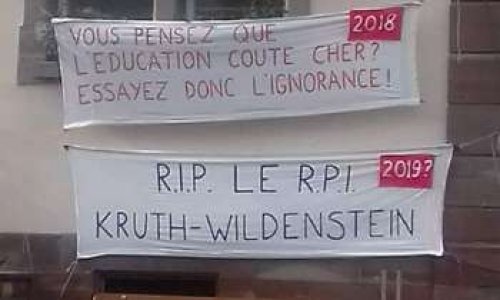 2018
VOUS PENSEZ QUE
L'EDUCATION COUTE CHER?
ESSAYEZ DONC L'IGNORANCE!
R.I.P. LE R.P.I. 2019?
KRUTH-WILDENSTEIN